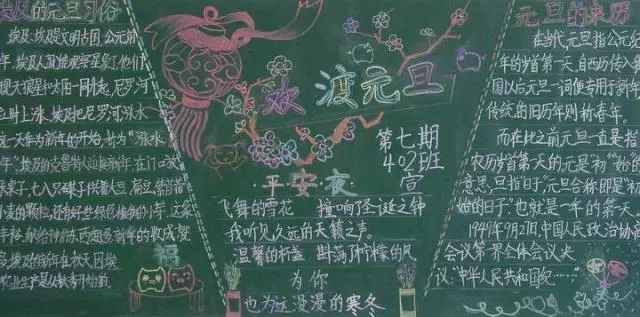 埃及的元旦习俗
埃及:埃及是文明古国,公元前
年,埃及人就能观察星象,他们
现天狼星和太阳一同升起,尼罗河
立时上涨,埃及把尼罗河涨水
这一天作为新年的开始,称为“涨水
新年,在门口放
大豆、扁豆、紫苜蓿
小麦的颗粒,还有好些绿色植物的小芽
年的收成就
欢渡元旦
第七期
402班
宣
平安夜
飞舞的雪花 撞响圣诞之钟
我听见久远的天籁之声
温馨的杯盏 斟满了柠檬的风
为你
也为这漫漫的寒冬
福
元旦的来历
在当代,元旦指公元纪
年的岁首第一天,自西历传入我
国以后,元旦一词便专用于新年
传统的旧历年则称春年。
而在此之前元旦一直是指
农历岁首第一天的元是初“始的
意思,旦指日子,元旦合称即是“初
始的日子”也就是一年的第一天
1949年9月27日中国人民政治协商
会议第一界全体会议决
议:“中华人民共和国纪……”